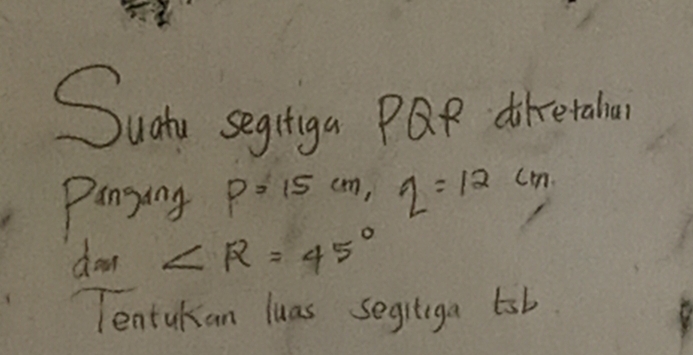 Suatu segitiga PQR diketahui
Pangang P = 15 cm, q = 12 cm.
dan < R = 45°
Tentukan luas segitiga tsb